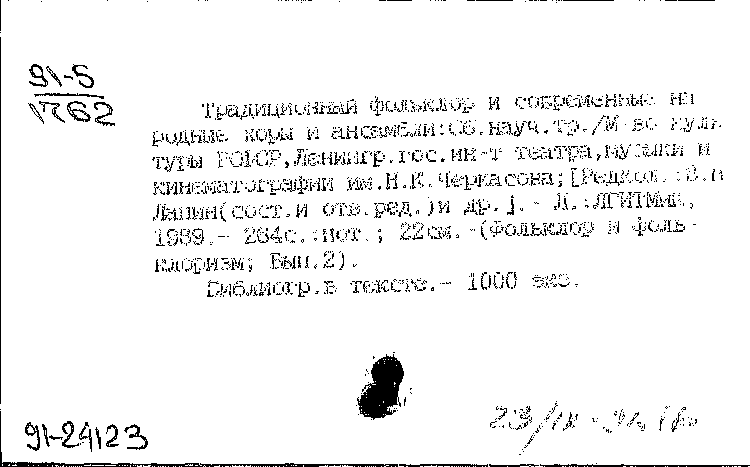 91-5
1762
Традиционный фольклор и современные на
родные хоры и ансамбли:Сб.науч.тр./М-во куль
туры РСФСР,Ленингр.гос.ин-т театра,музыки и
кинематографии им.Н.К.Черкасова;[Редкол.:В.
Лапин(сост.и отв.ред.)и др.].- Л.:ЛГИТМиК,
1989.- 264с.:нот.; 22см.-(Фольклор и фоль-
клоризм; Вып.2).
Библиогр.в тексте.- 1000 экз.
91-24123